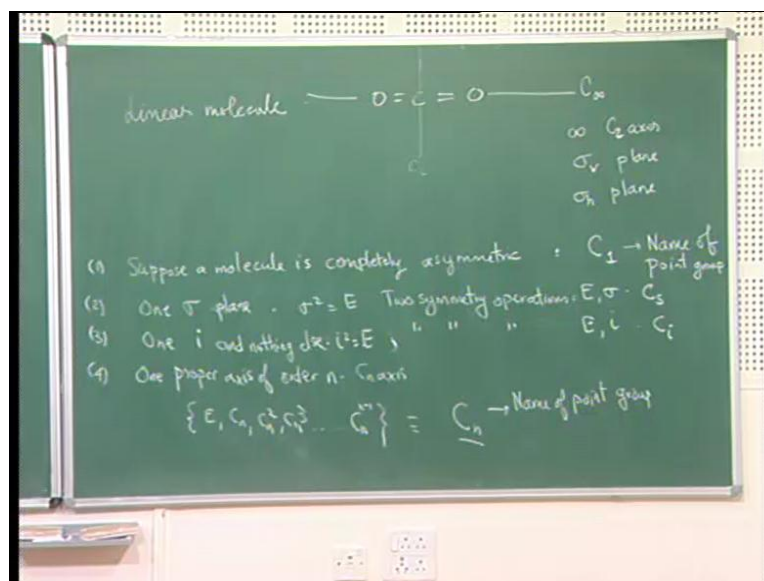 Linear molecule — O=C=O — C∞
C₂
∞ C₂ axes
σᵥ plane
σₕ plane
(1) Suppose a molecule is completely asymmetric . C₁ → Name of
point group
(2) One σ plane . σ² = E Two symmetry operations . E, σ . Cₛ
(3) One i and nothing else . i² = E , " " " E, i . Cᵢ
(4) One proper axis of order n . Cₙ axis
{ E, Cₙ, Cₙ², Cₙ³ ... Cₙⁿ⁻¹ } ≡ Cₙ → Name of point group